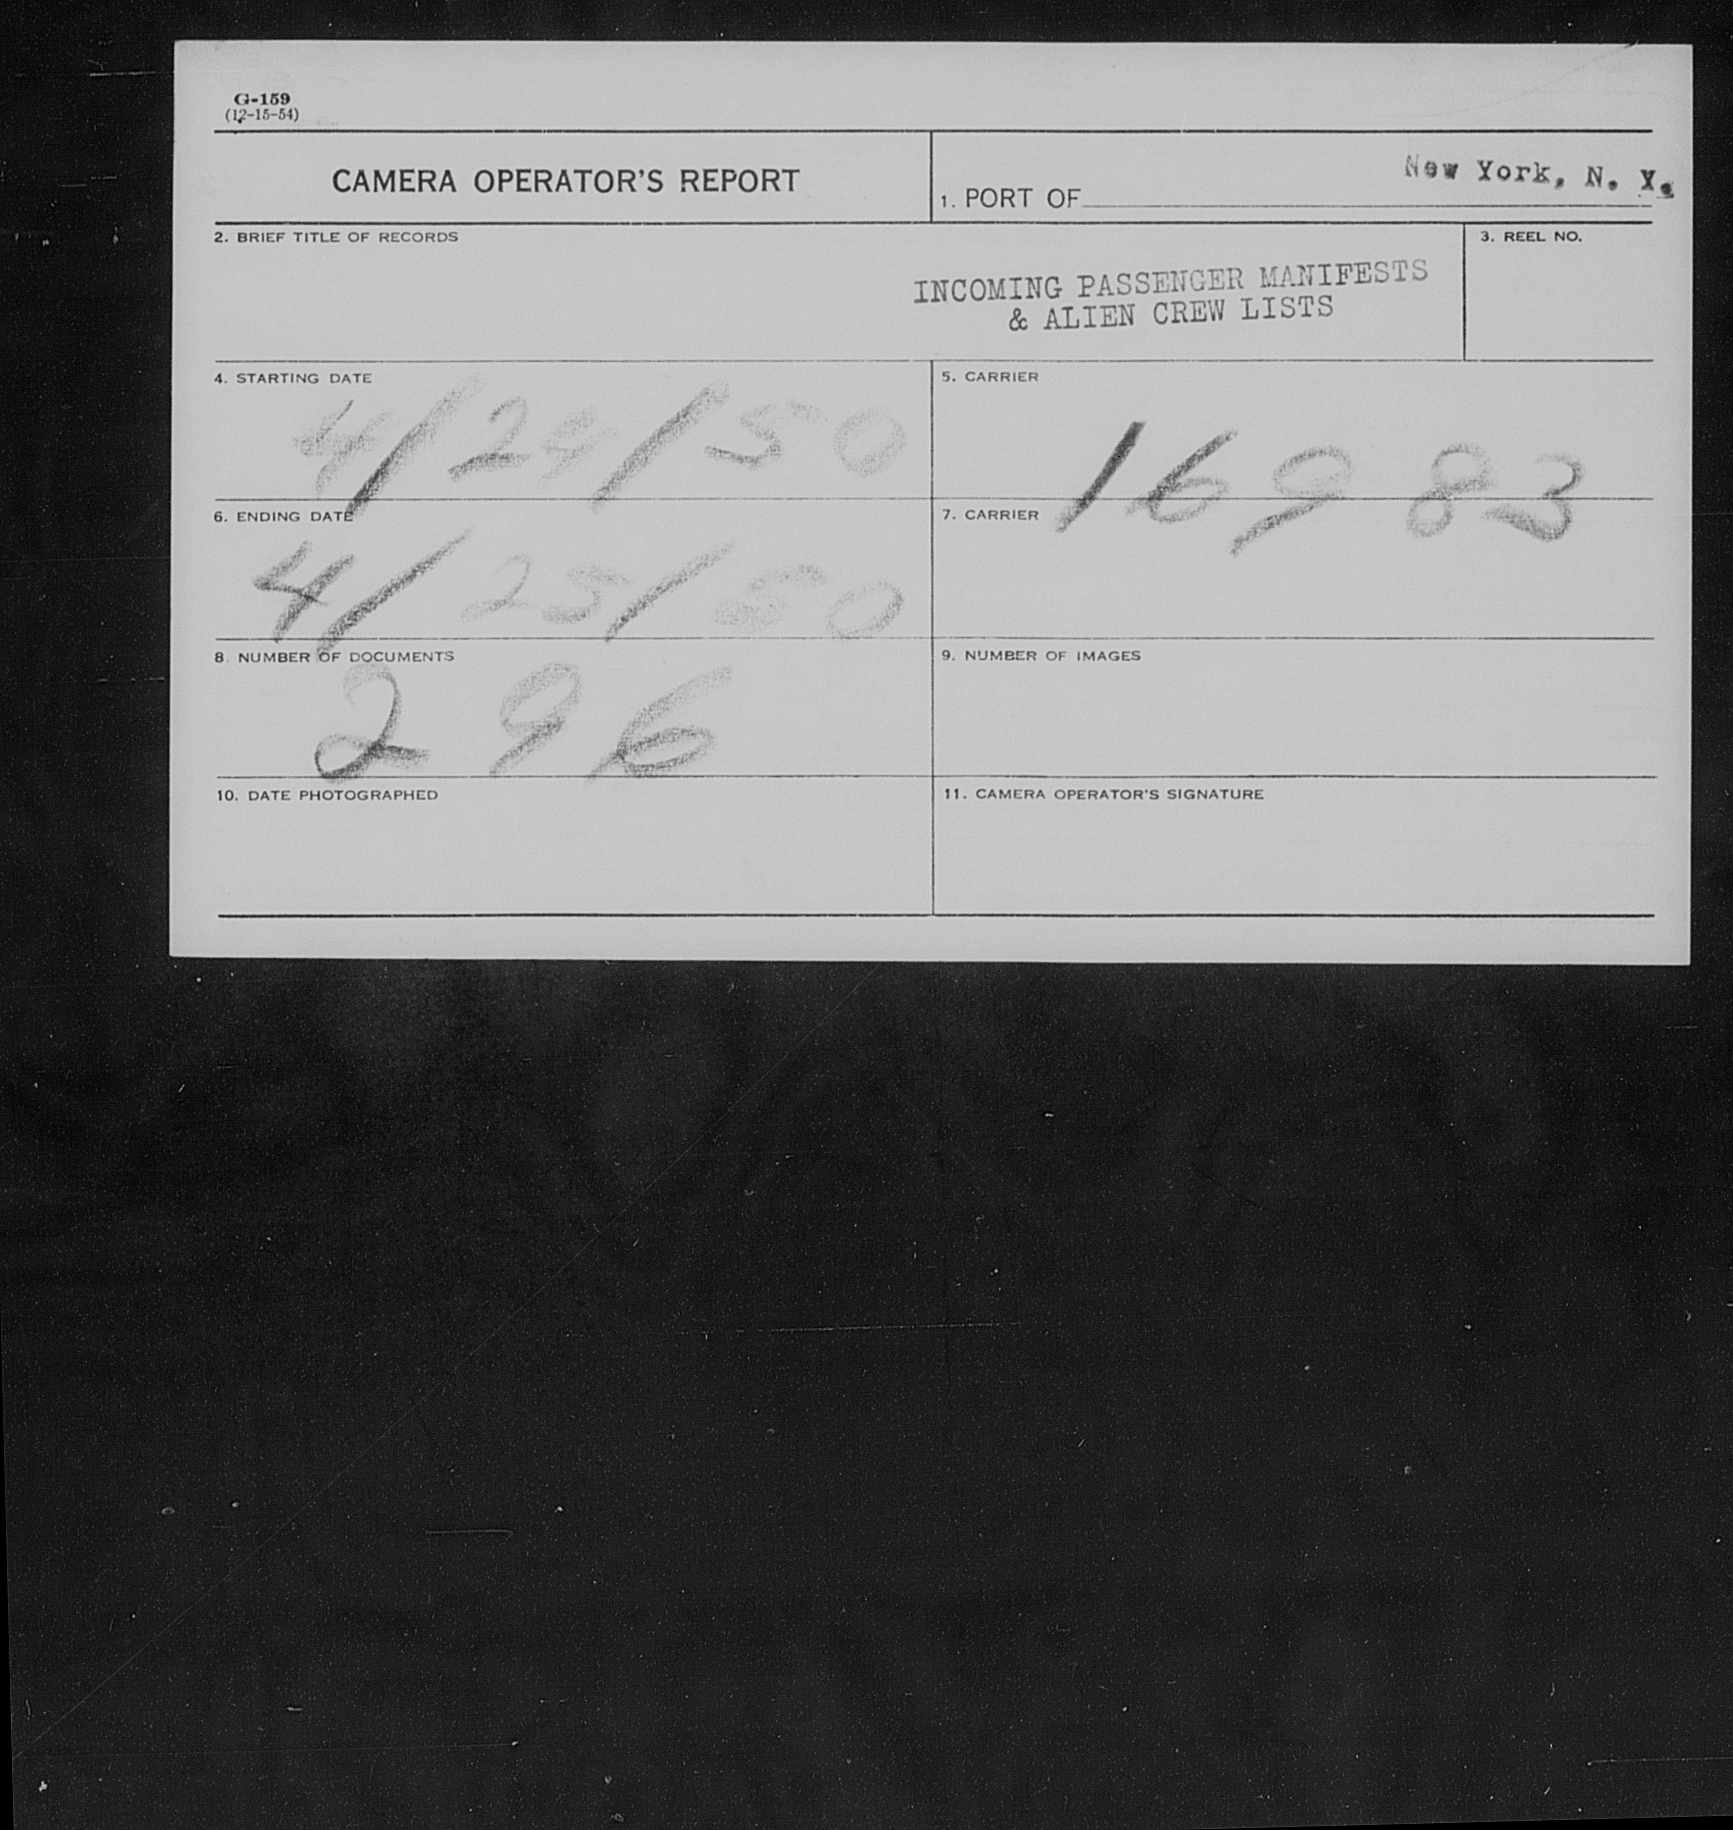 G-159
(12-15-54)
CAMERA OPERATOR'S REPORT
1. PORT OF New York, N. Y.
2. BRIEF TITLE OF RECORDS
INCOMING PASSENGER MANIFESTS
& ALIEN CREW LISTS
3. REEL NO.
4. STARTING DATE
4/24/50
5. CARRIER
16983
6. ENDING DATE
4/25/50
7. CARRIER
8. NUMBER OF DOCUMENTS
296
9. NUMBER OF IMAGES
10. DATE PHOTOGRAPHED
11. CAMERA OPERATOR'S SIGNATURE